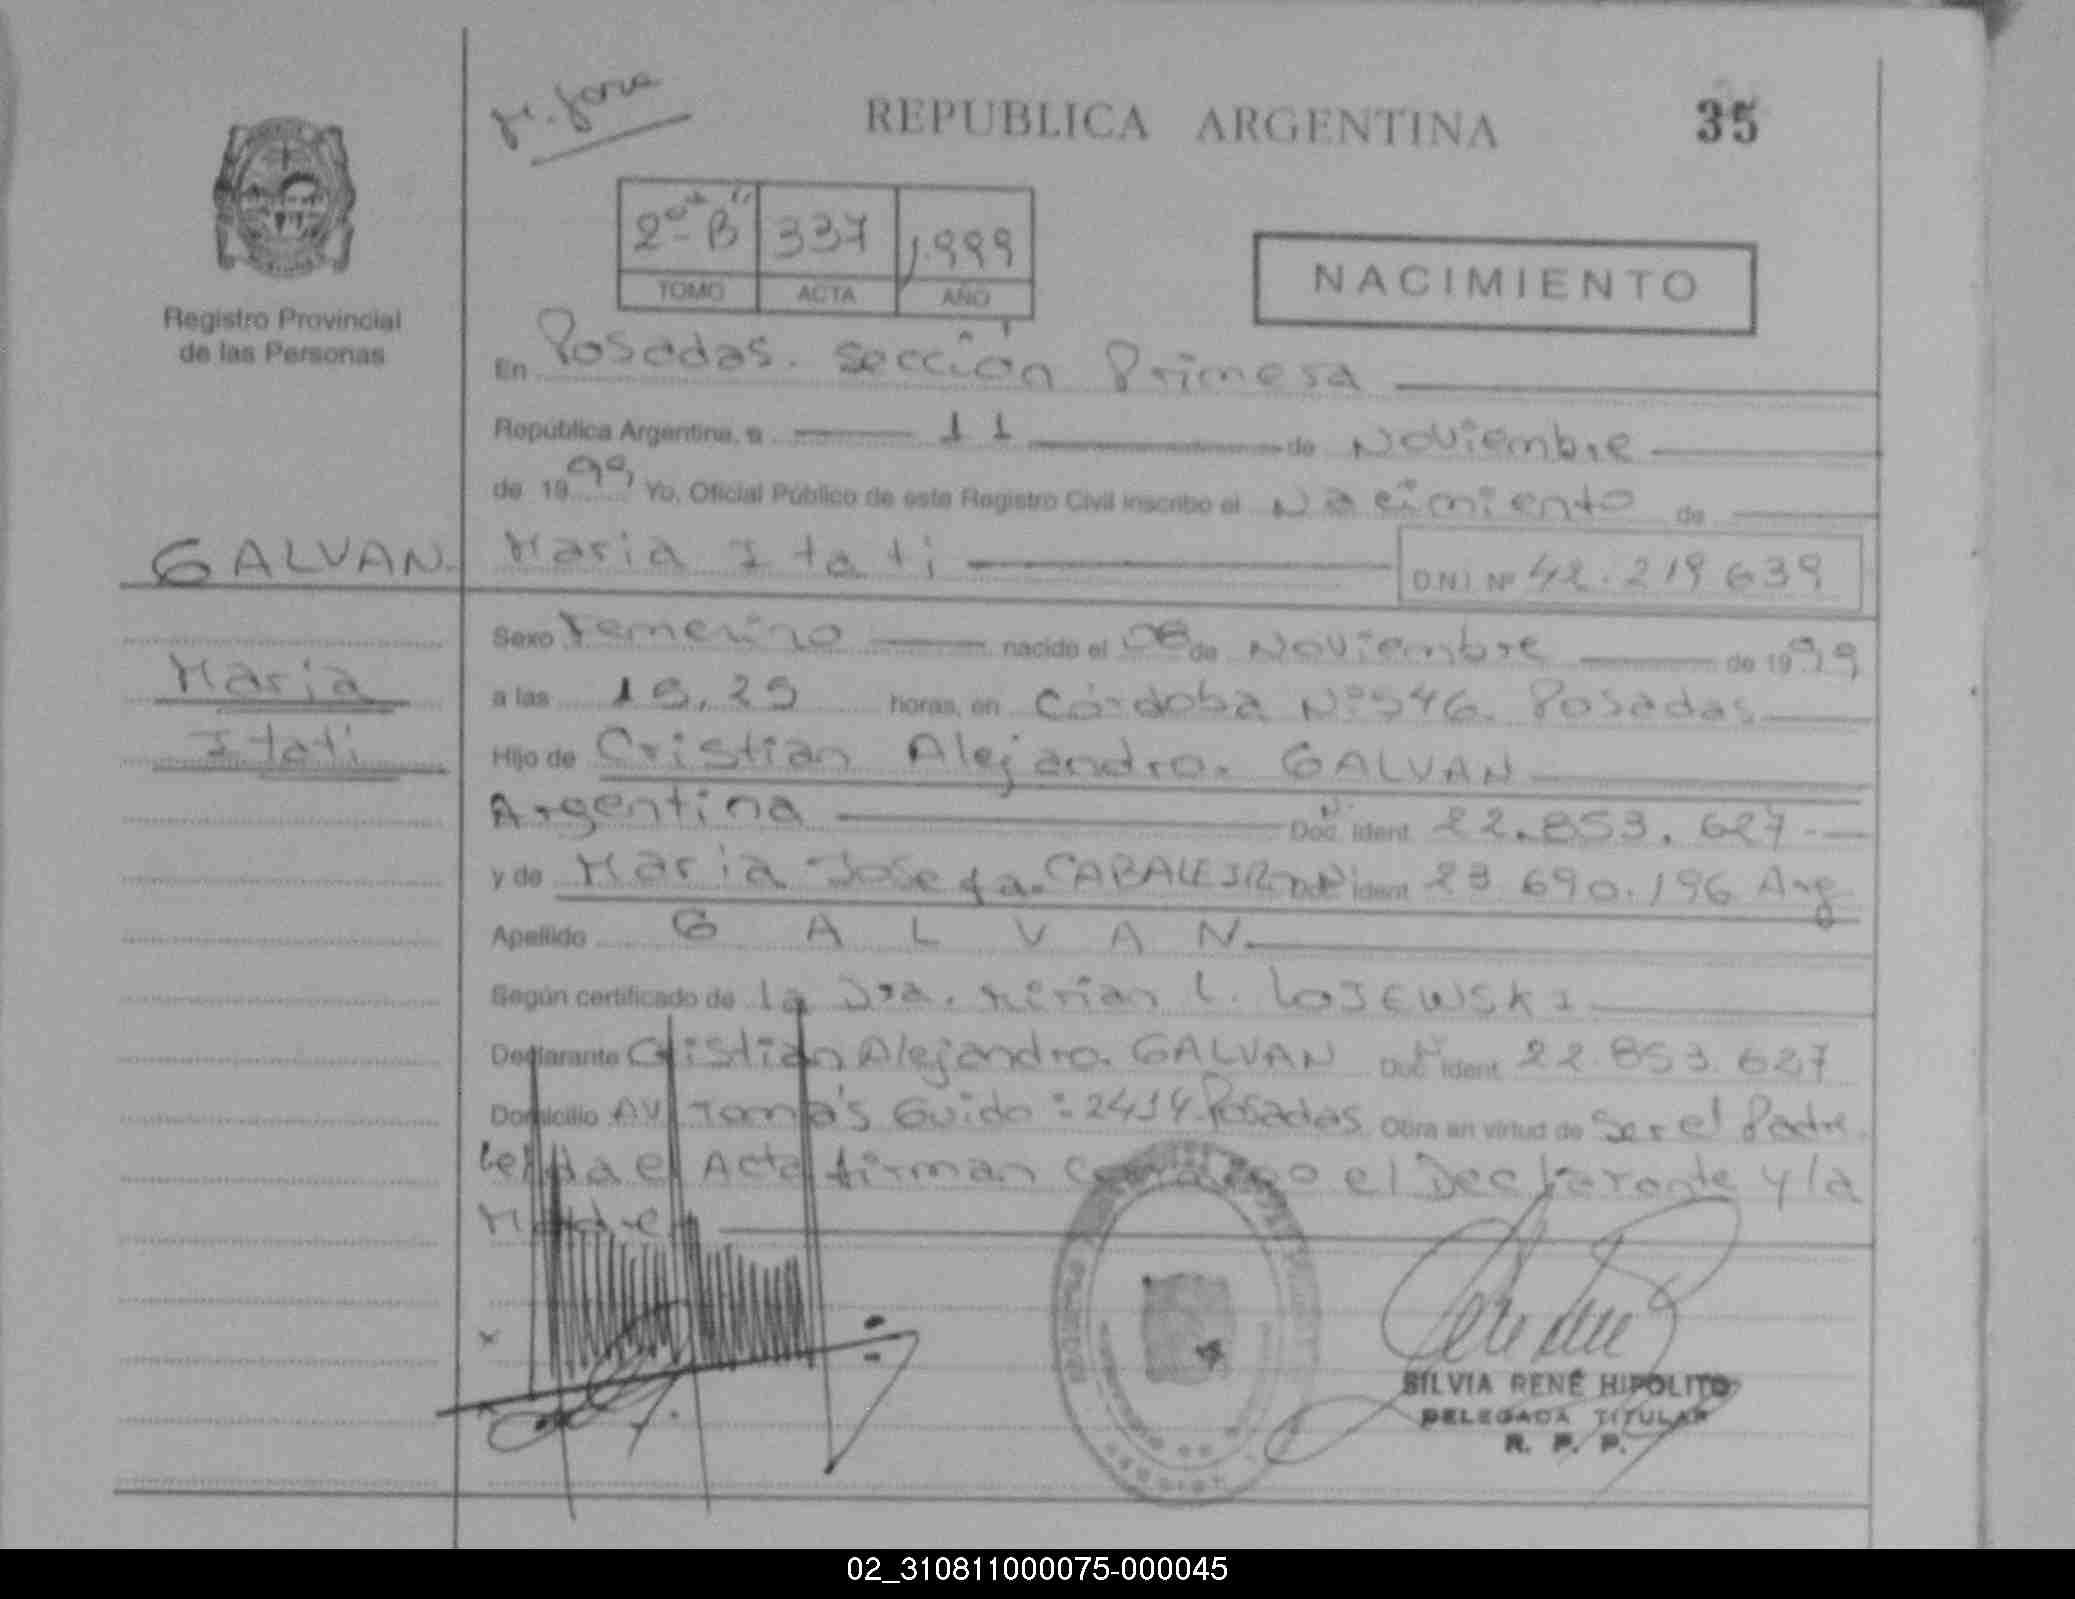 REPUBLICA ARGENTINA
35
2do "B" 337 1.999
TOMO ACTA AÑO
NACIMIENTO
Registro Provincial
de las Personas
En Posadas. Sección Primera
República Argentina, a 11 de Noviembre
de 1999 Yo, Oficial Público de este Registro Civil inscribo el Nacimiento de
GALVAN. Maria Itati D.N.I. Nº 42.219639
Sexo Femenino nacido el 08 de Noviembre de 1999
Maria
a las 19,29 horas, en Córdoba Nº 946. Posadas
Itati
Hijo de Cristian Alejandro. GALVAN
Argentina Doc. Ident. 22.853.627
y de Maria Josefa. Doc. Ident 23 690.196 Arg
Apellido G A L V A N.
Según certificado de la Dra. Mirian L. LOJEWSKI
Declarante Cristian Alejandro. GALVAN Doc. Ident. 22.853.627
Domicilio AV Tomás Guido: 2414 Posadas Obra en virtud de Ser el Padre.
Leida el Acta firman conmigo el Declarante y la
Madre
SILVIA RENÉ HIPOLITO
DELEGADA TITULAR
R. P. P.
02_310811000075-000045